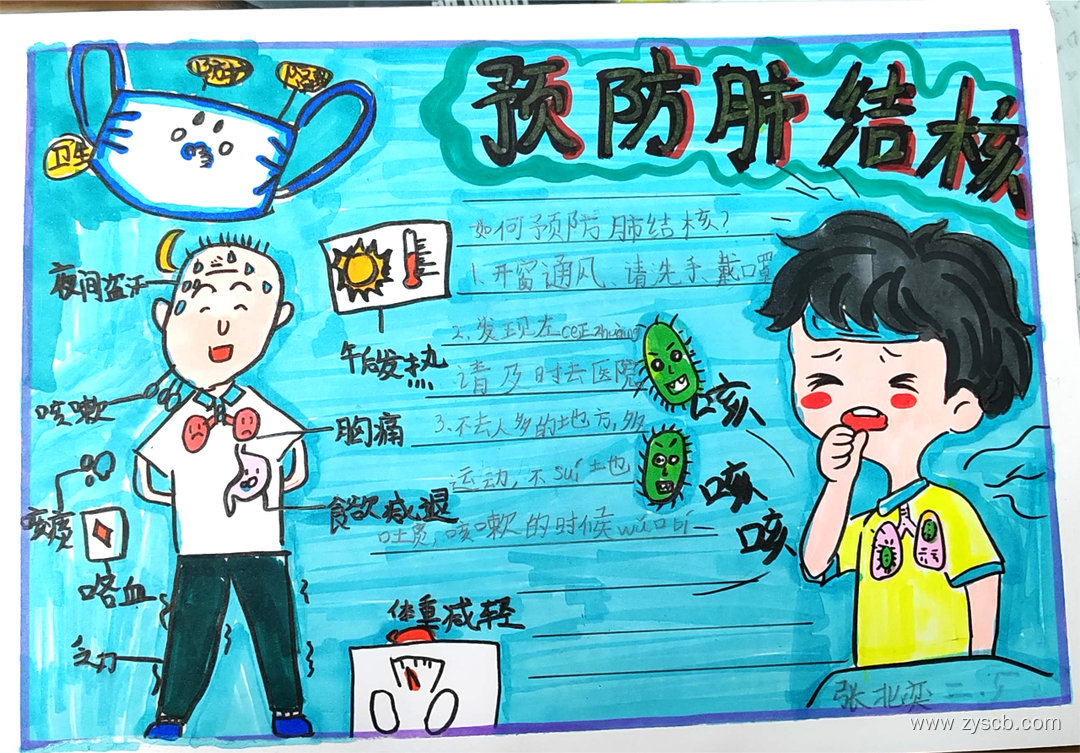 预防肺结核
卫生
如何预防肺结核?
1.开窗通风、请洗手、戴口罩
2、发现左ceizhuang
请及时去医院
3、不去人多的地方,多
运动,不sui土也
吐痰,咳嗽的时候wu口bi
夜间盗汗
午后发热
咳嗽
胸痛
咳痰
食欲减退
咯血
乏力
体重减轻
咳
咳
咳
张北奕 二.5
www.zyscb.com